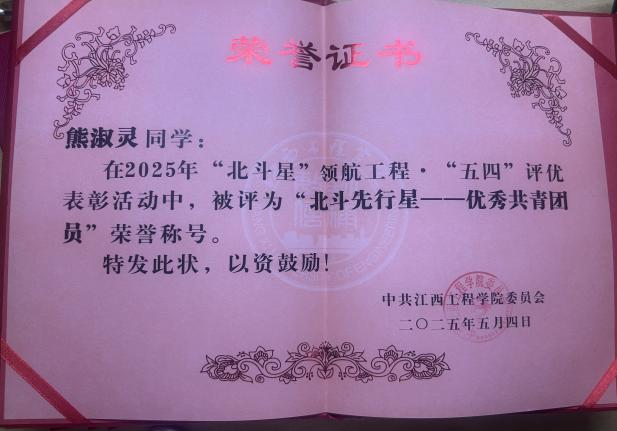 荣誉证书
熊淑灵同学：
在2025年“北斗星”领航工程·“五四”评优
表彰活动中，被评为“北斗先行星——优秀共青团
员”荣誉称号。
特发此状，以资鼓励！
中共江西工程学院委员会
二〇二五年五月四日